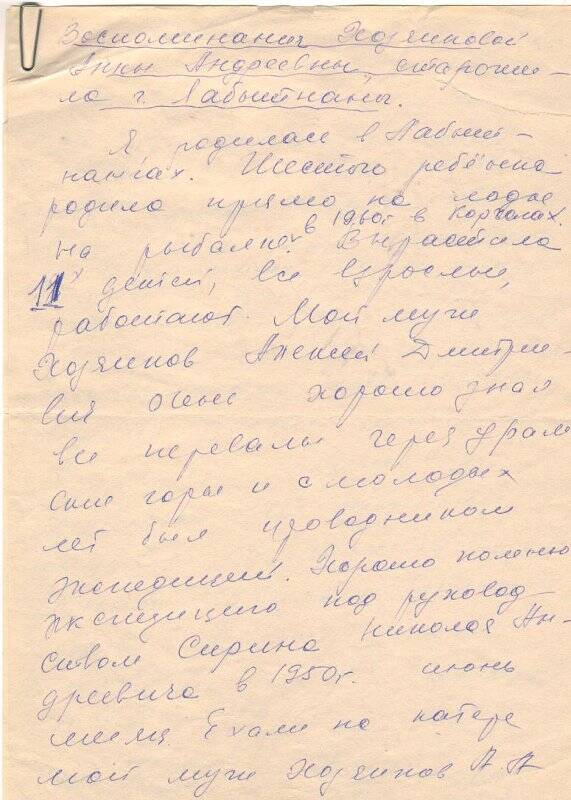 Воспоминания Хозяиновой
Анны Андреевны, старожи-
ла г. Лабытнаны.
Я родилась в Лабыт-
нангах. Шестого ребёнка
родила прямо на лодке
на рыбалке в 1960г в Корчагах. Вырастила
11х детей, все взрослые,
работают. Мой муж
Хозяинов Алексей Дмитри-
вич очень хорошо знал
все перевалы через Ураль
ские горы и с молодых
лет был проводником
экспедиций. Хорошо помню
экспедицию под руковод-
ством Сирина Николая Ан-
дреевича в 1950г. июнь
месяц. Ехали на катере
мой муж Хозяинов А. А